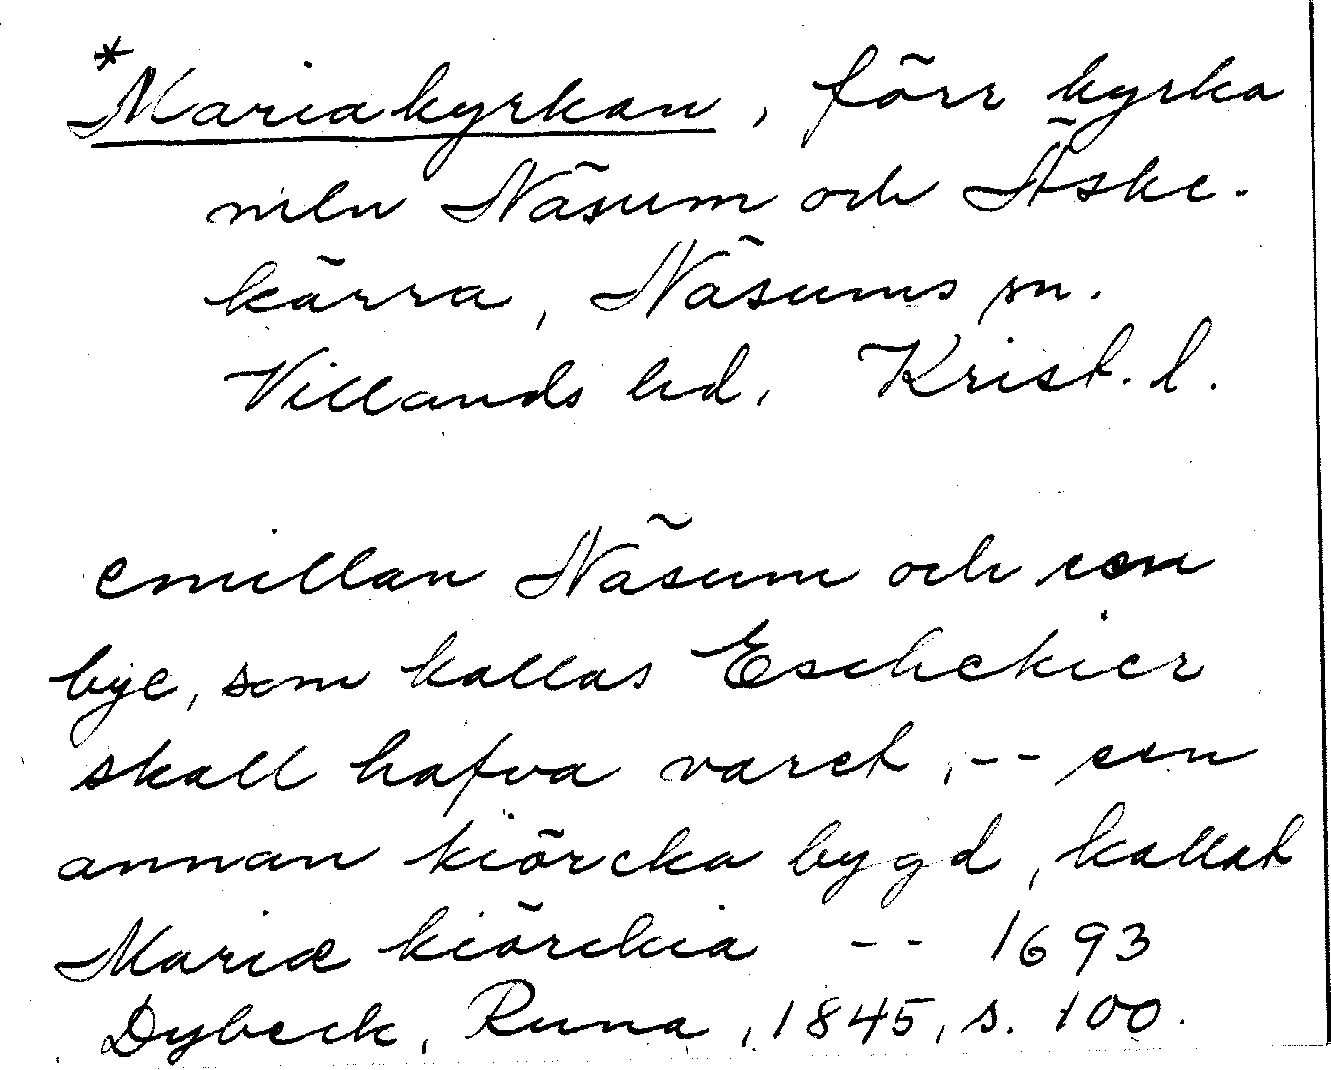 *Mariakyrkan, förr kyrka
mln Näsum och Äske-
kärra, Näsums sn.
Villands hd, Krist. l.
emillan Näsum och een
bye, som kallas Eschekier
skall hafva varet, -- een
annan kiörcka bygd, kallat
Mariæ kiörckia -- 1693
Dybeck, Runa, 1845, s. 100.